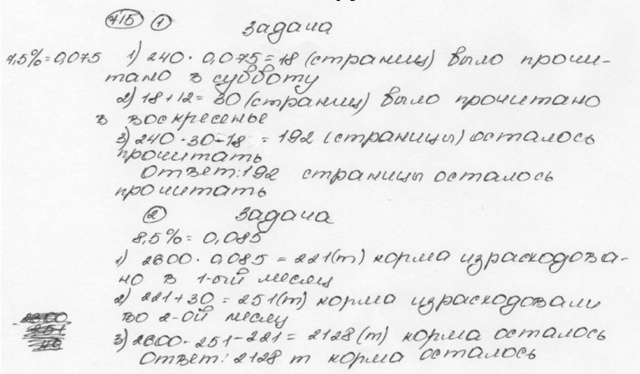 715 1 Задача
7,5%=0,075 1) 240 · 0,075 = 18 (страниц) было прочи-
тано в субботу
2) 18+12= 30 (страниц) было прочитано
в воскресенье
3) 240 - 30 - 18 = 192 (страницы) осталось
прочитать
Ответ: 192 страницы осталось
прочитать
2 Задача
8,5% = 0,085
1) 2600 · 0,085 = 221(т) корма израсходова-
но в 1-ый месяц
2) 221+30 = 251(т) корма израсходовали
во 2-ой месяц
3) 2600 - 251 - 221 = 2128 (т) корма осталось
Ответ: 2128 т корма осталось